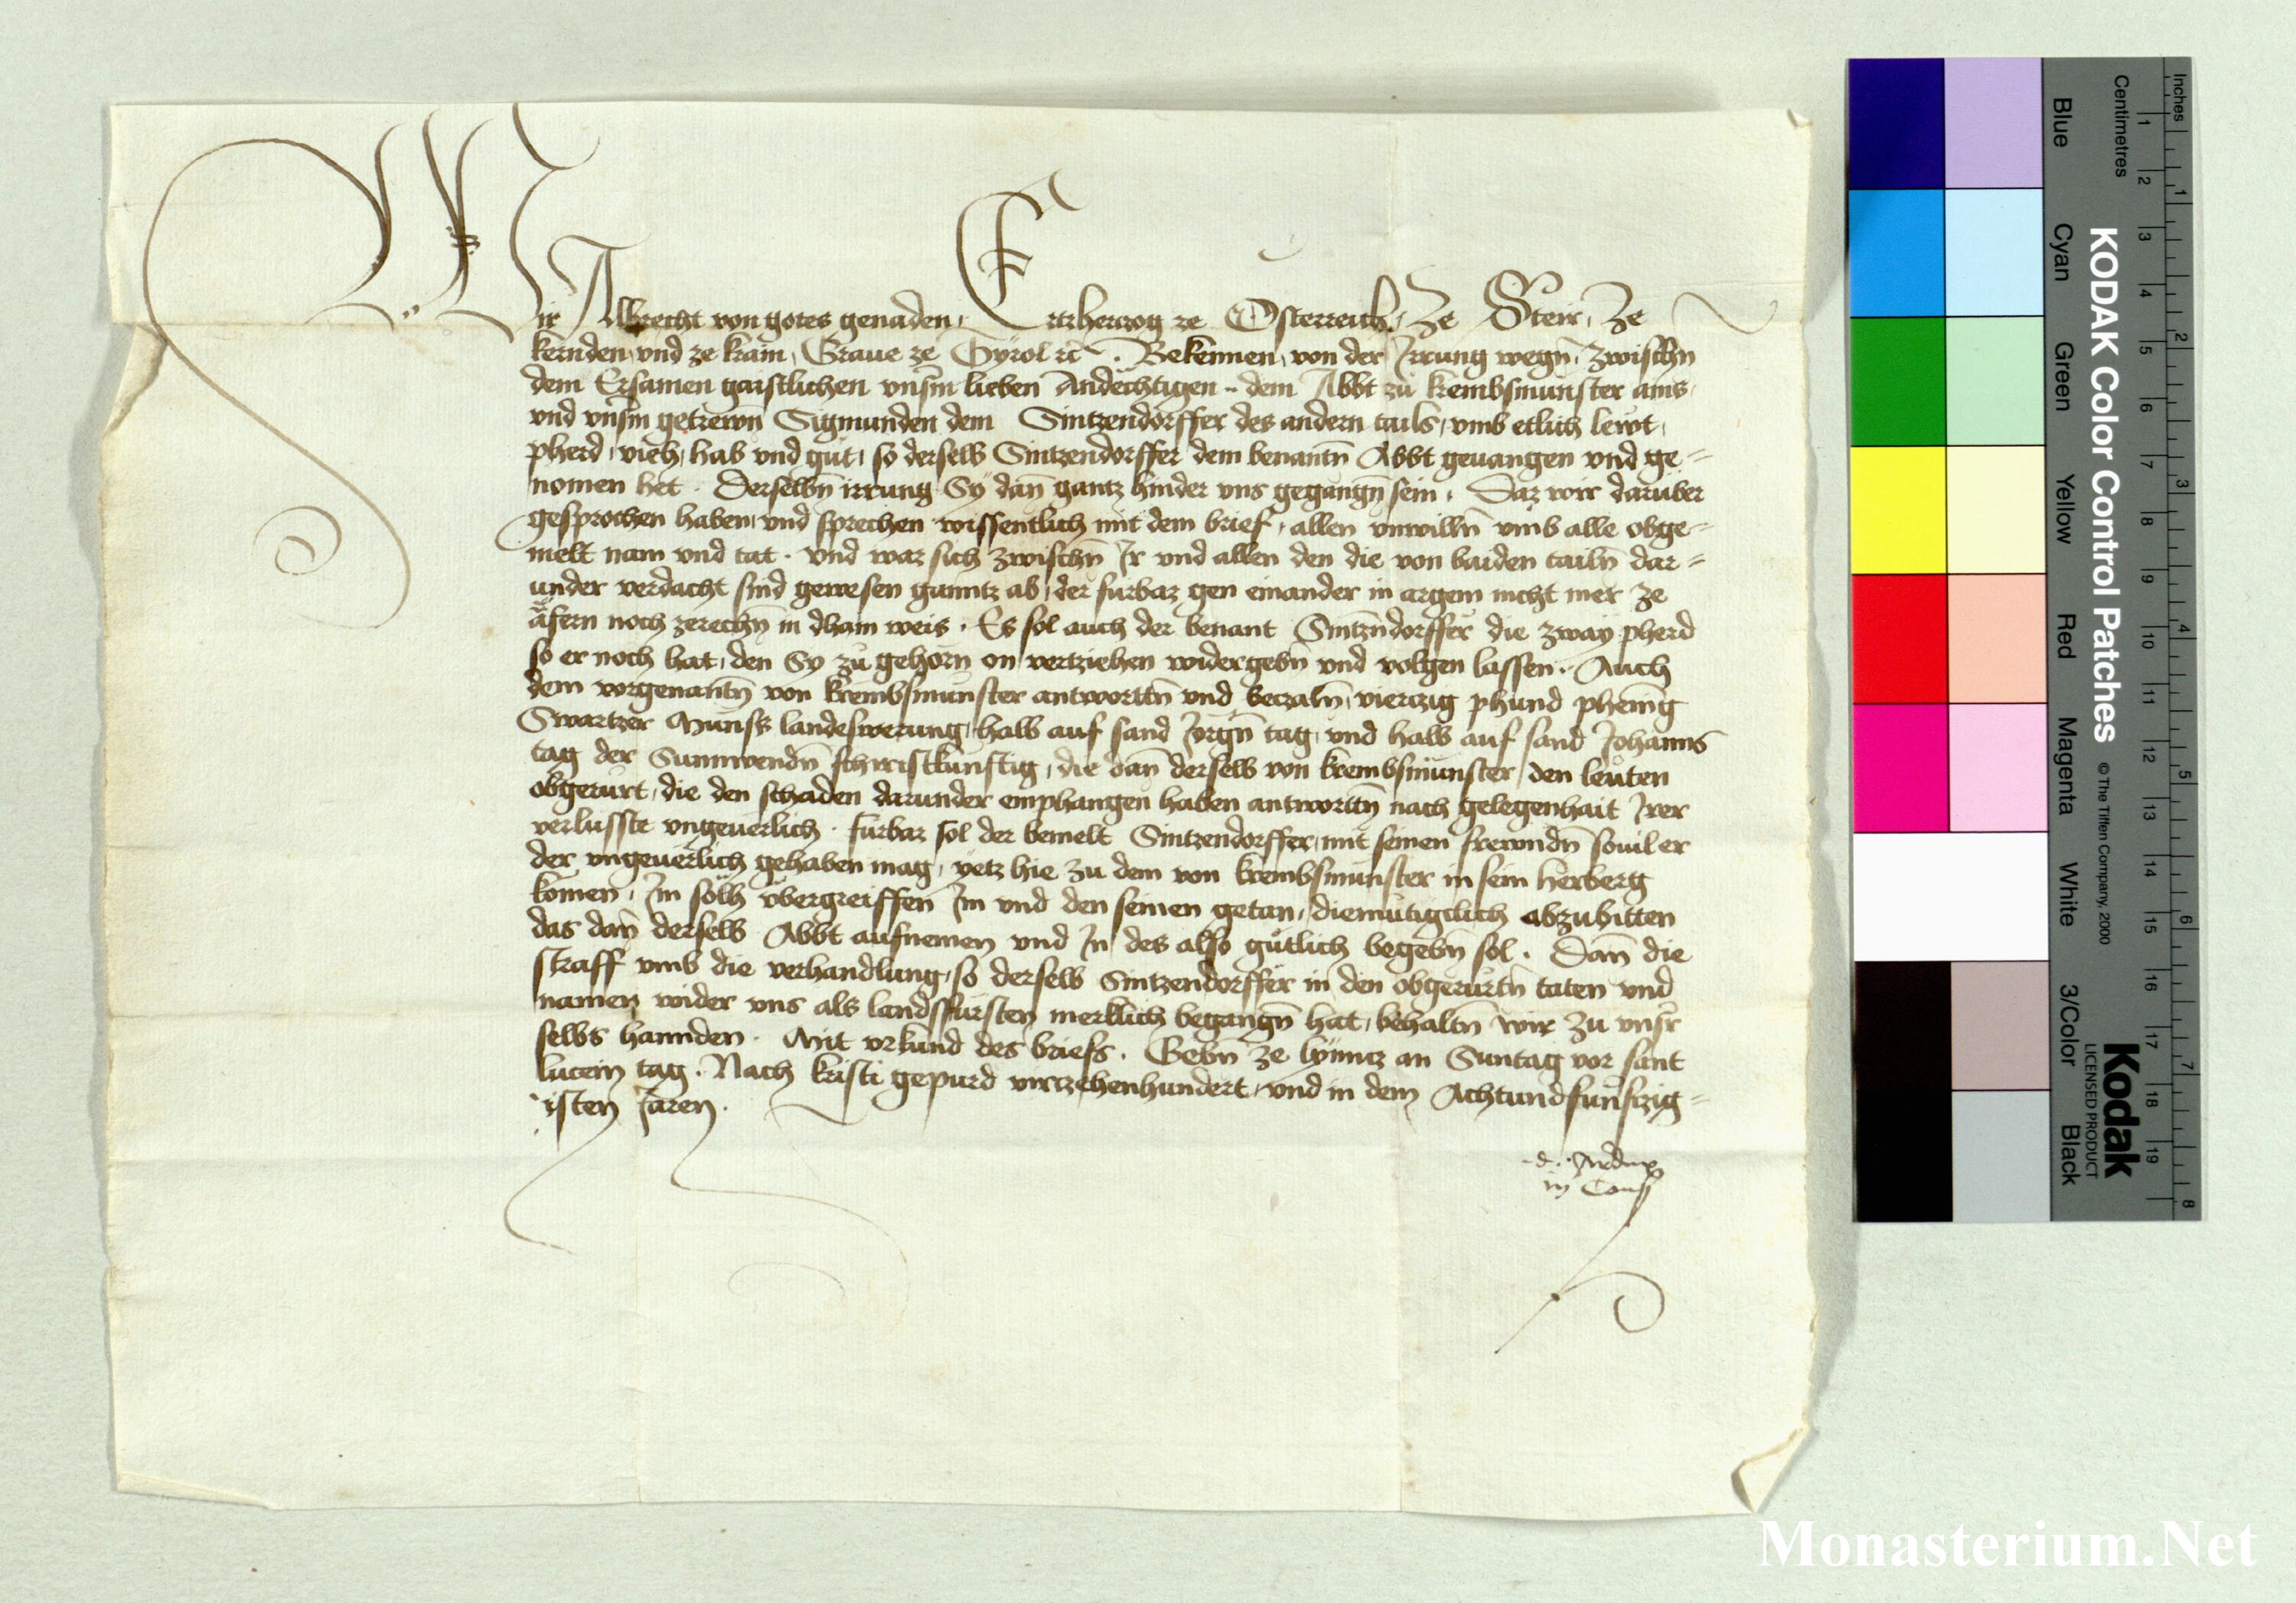 Wir Albrecht von gotes genaden, Ertzherczog ze Österreich, Ze Steir, Ze
kernden, vnd ze krain, Graue ze Tyrol etc. Bekennen, von der Irrung wegn, zwischn
dem Ersamen gaistlichen vnserm lieben Andechtigen .. dem Abbt zu krembsmünster ains,
vnd vnserm getrewn Sigmunden dem Sintzendorffer des andern tails, vmb etlich lewt,
pherd, viech, hab vnd gut, so derselb Sintzendorffer dem benantn Abbt geuangen vnd ge=
nomen het. Derselbn irrung Sy dann gantz hinder vns gegangn sein. Daz wir daruber
gesprochen haben, vnd sprechen wissentlich mit dem brief, allen vnwilln vmb alle obge=
melt nam vnd tat. vnd waz sich zwischn Ir vnd allen den die von baiden tailn dar=
under verdacht sind gewesen ganntz ab, der furbaz gen einander in argem nicht mer ze
äfern noch zerechn in dhain weis. Es sol auch der benant Sintzndorffer die zway pherd
so er noch hat, den Sy zu gehorn on vertziehen widergebn vnd volgen lassen. Auch
dem vorgenantn von krembsmünster antworttn vnd beczaln, vierczig phund phening
Swartzer Münss landeswerung, halb auf sand Jorgn tag, vnd halb auf sand Johanns
tag der Sunnwendn schiristkunftig, die dann derselb von krembsmünster, den leuten
obgerürt, die den schaden darunder emphangen haben antworttn nach gelegenhait Irer
verlusste vngeuerlich. furbaz sol der bemelt Sintzendorffer, mit seinen frewndn souil er
der vngeuerlich gehaben mag, yetz hie zu dem von krembsmünster in sein herberg
komen, Im sölh vbergreiffen Im vnd den seinen getan, diemutigclich abzubitten
das dann derselb Abbt aufnemen vnd In des also gütlich begebn sol. Dann die
straff vmb die verhandlung, so derselb Sintzendorffer in den obgerurtn taten vnd
namen wider vns als landsfürsten merklich begangn hat, behaltn wir zu vnser
selbs hannden. Mit vrkund des briefs. Gebn ze lynntz an Suntag vor sant
lucein tag. Nach kristi gepurd vierczehenhundert, vnd in dem Achtundfunfczig=
isten Jaren.
d. Archidux
in Cons
Inches
Centimetres
Blue
Cyan
Green
Yellow
Red
Magenta
White
3/Color
Black
KODAK Color Control Patches
© The Tiffen Company, 2000
Kodak
LICENSED PRODUCT
1 2 3 4 5 6 7 8 9 10 11 12 13 14 15 16 17 18 19
1 2 3 4 5 6 7 8
Monasterium.Net